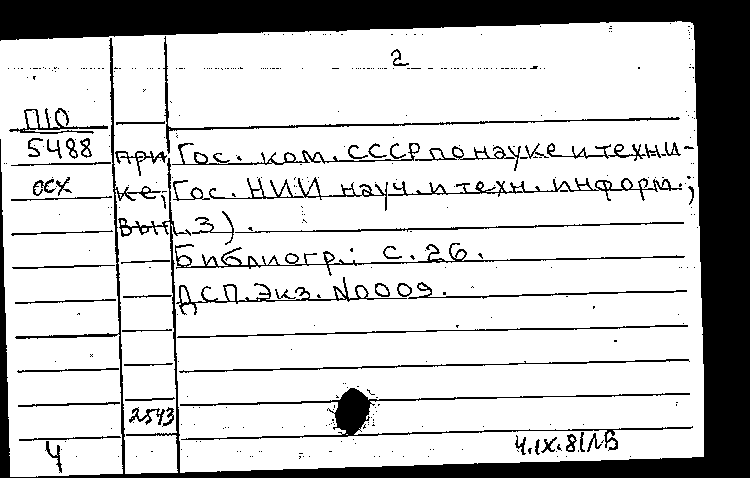 2
П10
5488
осх
при Гос. ком. СССР по науке и техни-
ке, Гос. НИИ науч. и техн. информ.;
вып. 3).
Библиогр.: с. 26.
ДСП. Экз. N0009.
2543
4
4.IX.81ЛВ